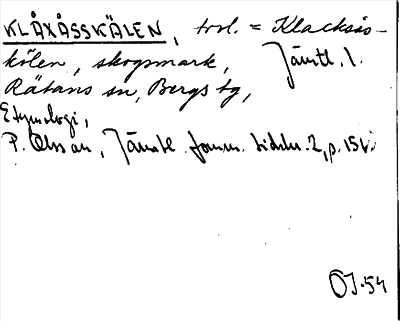 KLÅXÅSSKÄLEN, trol. = Klacksås-
kölen, skogsmark, Jämtl. l.
Rätans sn, Bergs tg,
Etymologi,
P. Olsson, Jämtl. fornm. tidskr. 2, p. 151
OJ-54